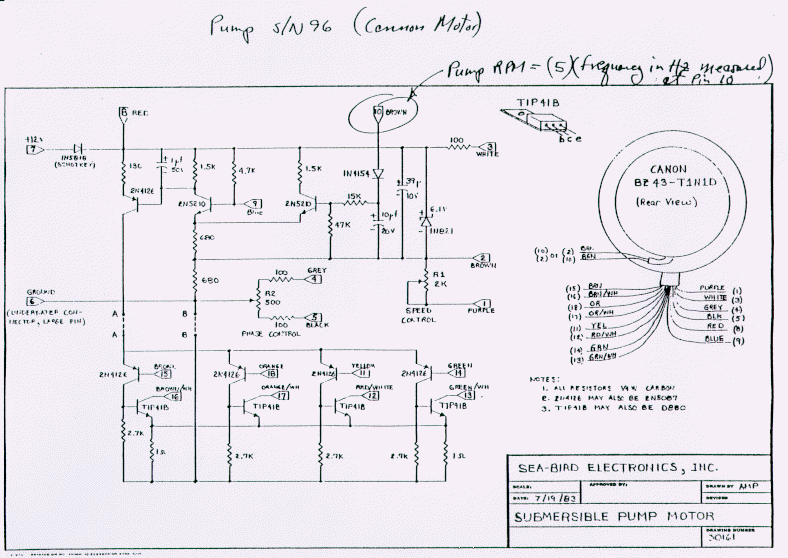 Pump S/N 96 (Cannon Motor)
Pump RPM = (5)(frequency in Hz measured
at Pin 10
8 RED
10 BROWN
TIP41B
b c e
+12v
7
1N5818
(SCHOTTKEY)
130
1µf
50v
1.5K
4.7K
1.5K
1N4154
39µ
10v
100
3
WHITE
2N4126
2N5210
9
Blue
2N5210
15K
47K
10µf
20V
6.1V
1N821
680
2
BROWN
CANON
BZ 43-T1N1D
(Rear View)
680
GROUND
6
(UNDERWATER CON-
NECTOR, LARGE PIN)
A
B
A
B
100
GREY
4
R2
500
100
5
BLACK
PHASE CONTROL
R1
2K
SPEED
CONTROL
1
PURPLE
(10) OR (2) BRN
(2) (10) BRN
(15) BRN
(16) BRN/WH
(18) OR
(17) OR/WH
(11) YEL
(12) RD/WH
(14) GRN
(13) GRN/WH
PURPLE (1)
WHITE (3)
GREY (4)
BLK (5)
RED (8)
BLUE (9)
2N4126
BROWN
15
BROWN/WH
16
TIP41B
2.7K
1Ω
2N4126
ORANGE
18
ORANGE/WH
17
TIP41B
2.7K
2N4126
YELLOW
11
RED/WHITE
12
TIP41B
2.7K
2N4126
GREEN
14
GREEN/WH
13
TIP41B
2.7K
1Ω
NOTES:
1. ALL RESISTORS 1/4 W CARBON
2. 2N4126 MAY ALSO BE 2N5087
3. TIP41B MAY ALSO BE D880
SEA-BIRD ELECTRONICS, INC.
SCALE:
APPROVED BY:
DRAWN BY AMP
DATE: 7/19/83
REVISED
SUBMERSIBLE PUMP MOTOR
DRAWING NUMBER
30161